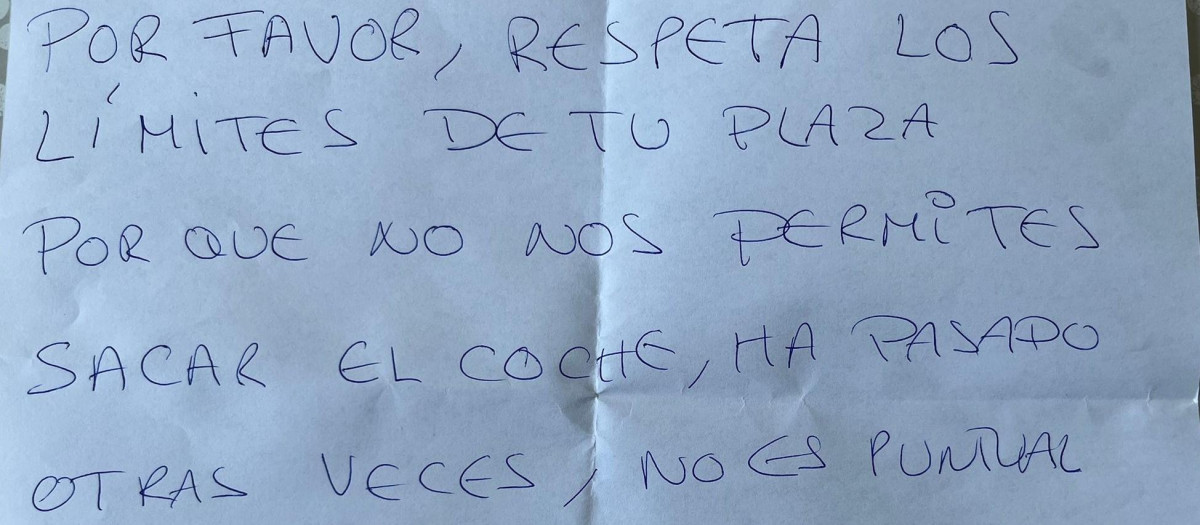 POR FAVOR, RESPETA LOS
LÍMITES DE TU PLAZA
POR QUE NO NOS PERMITES
SACAR EL COCHE, HA PASADO
OTRAS VECES, NO ES PUNTUAL